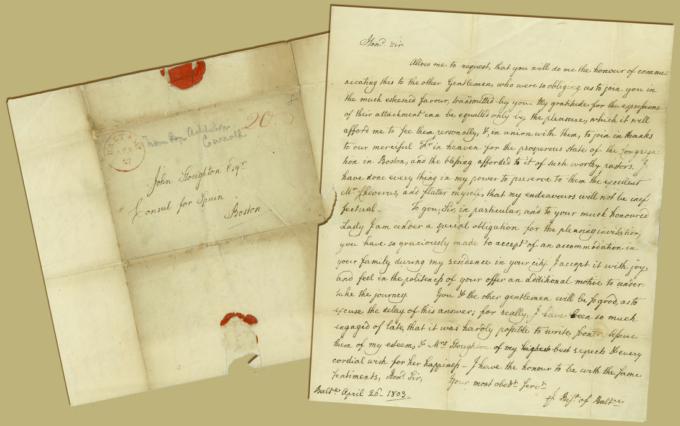 from Bp
Carroll
20
John Stoughton Esqr.
Consul for Spain
Boston
Hond. Sir
Allow me to request, that you will do me the honour of commu-
nicating this to the other Gentlemen who were so obliging as to join you in
the much esteemed favour, transmitted by you. My gratitude for the expressions
of their attachment can be equalled only by the pleasure, which it will
afford me to see them personally, &, in union with them, to join in thanks
to our merciful Fr. in heaven for the prosperous state of the congrega-
tion in Boston, and the blessing afforded to it of such worthy pastors. I
have done every thing in my power to preserve to them the excellent
Mr. Cheverus, and flatter myself, that my endeavours will not be inef-
fectual. To you, Sir, in particular, and to your much honoured
Lady I am under a special obligation for the pleasing invitation,
you have so graciously made to accept of an accommodation in
your family during my residence in your city. I accept it with joy,
and feel in the politeness of your offer an additional motive to under-
take the journey. You & the other gentlemen will be so good, as to
excuse the delay of this answer; for really, I have been so much
engaged of late, that it was hardly possible to write sooner. Assure
them of my esteem, & Mrs. Stoughton of my highest best respects & every
cordial wish for her happiness - I have the honour to be with the same
sentiments, Hond. Sir, Your most obedt. servt.
Baltre. April 26- 1803. + J. Bisp. of Baltre.